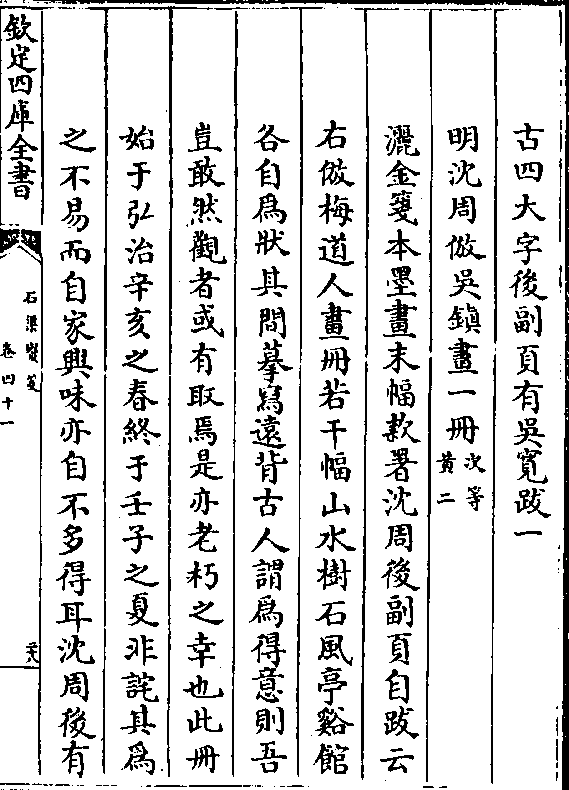 古四大字後副頁有吳寬跋一
明沈周倣吳鎮畫一冊次等黃二
灑金箋本墨畫末幅款署沈周後副頁自跋云
右倣梅道人畫冊若干幅山水樹石風亭谿館
各自為狀其間摹寫遠背古人謂為得意則吾
豈敢然觀者或有取焉是亦老朽之幸也此冊
始于弘治辛亥之春終于壬子之夏非詫其為
之不易而自家興味亦自不多得耳沈周後有
欽定四庫全書
石渠寶笈
卷四十一